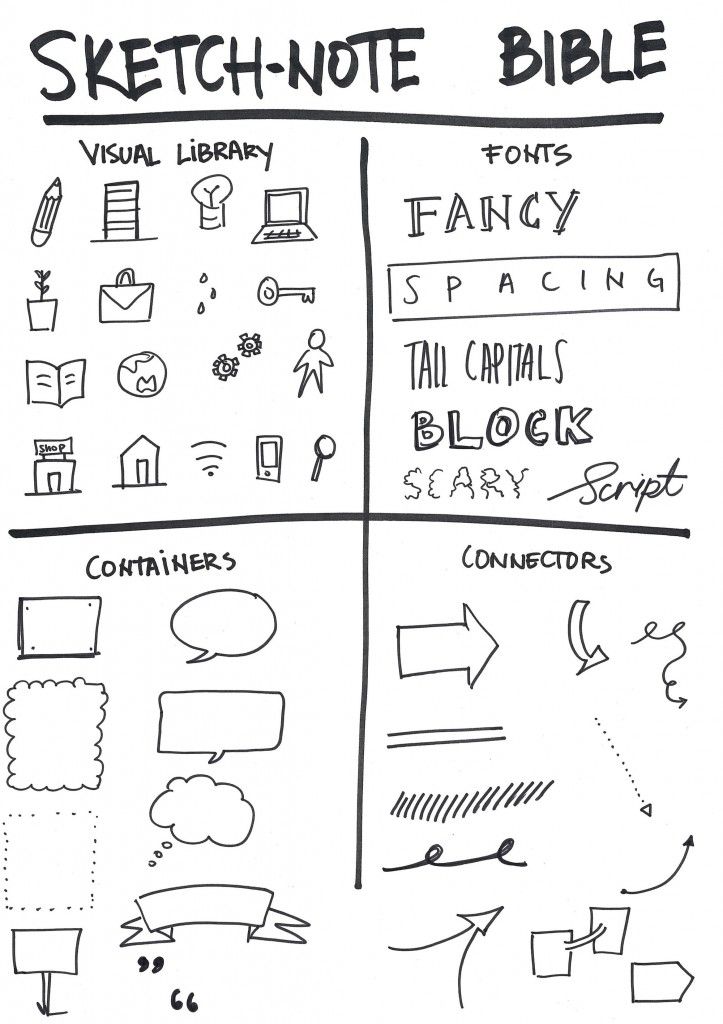 SKETCH-NOTE BIBLE
VISUAL LiBRARY
SHOP
FONTS
FANCY
SPACING
TALL CAPITALS
BLOCK
SCARY Script
CONTAiNERS
,,
“
CONNECTORS